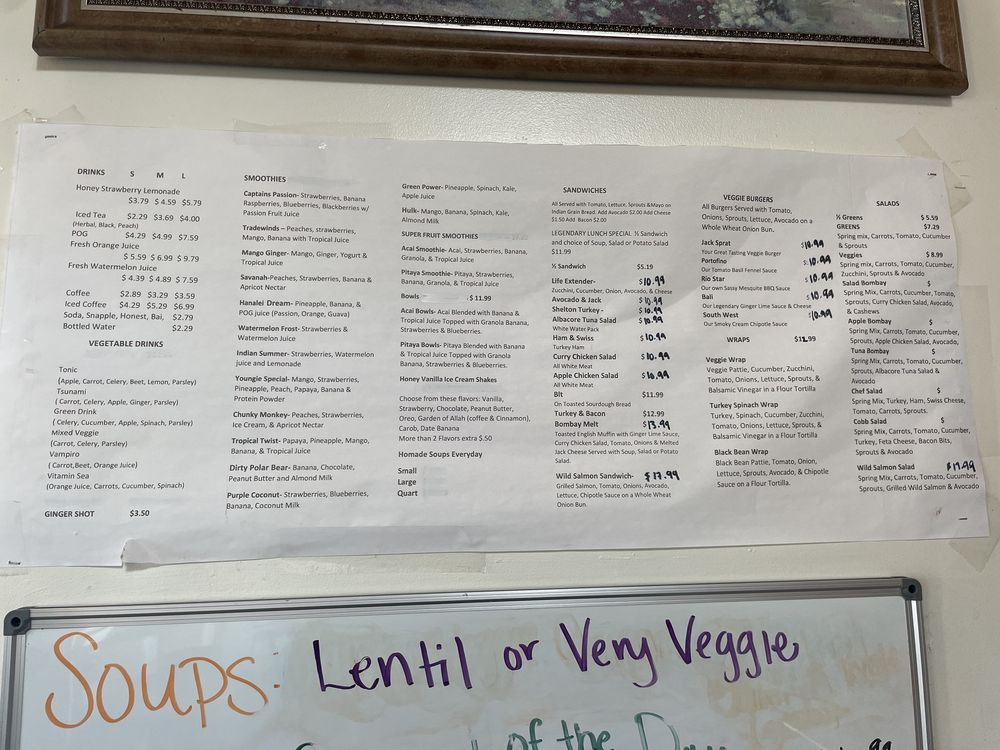 DRINKS S M L
Honey Strawberry Lemonade
$3.79 $4.59 $5.79
Iced Tea $2.29 $3.69 $4.00
(Herbal, Black, Peach)
POG $4.29 $4.99 $7.59
Fresh Orange Juice
$ 5.59 $ 6.99 $ 9.79
Fresh Watermelon Juice
$ 4.39 $ 4.89 $ 7.59
Coffee $2.89 $3.29 $3.59
Iced Coffee $4.29 $5.29 $6.99
Soda, Snapple, Honest, Bai, $2.79
Bottled Water $2.29
VEGETABLE DRINKS
Tonic
(Apple, Carrot, Celery, Beet, Lemon, Parsley)
Tsunami
( Carrot, Celery, Apple, Ginger, Parsley)
Green Drink
( Celery, Cucumber, Apple, Spinach, Parsley)
Mixed Veggie
(Carrot, Celery, Parsley)
Vampiro
( Carrot,Beet, Orange Juice)
Vitamin Sea
(Orange Juice, Carrots, Cucumber, Spinach)
GINGER SHOT $3.50
SMOOTHIES
Captains Passion- Strawberries, Banana
Raspberries, Blueberries, Blackberries w/
Passion Fruit Juice
Tradewinds – Peaches, strawberries,
Mango, Banana with Tropical Juice
Mango Ginger- Mango, Ginger, Yogurt &
Tropical Juice
Savanah-Peaches, Strawberries, Banana &
Apricot Nectar
Hanalei Dream- Pineapple, Banana, &
POG juice (Passion, Orange, Guava)
Watermelon Frost- Strawberries &
Watermelon Juice
Indian Summer- Strawberries, Watermelon
juice and Lemonade
Youngie Special- Mango, Strawberries,
Pineapple, Peach, Papaya, Banana &
Protein Powder
Chunky Monkey- Peaches, Strawberries,
Ice Cream, & Apricot Nectar
Tropical Twist- Papaya, Pineapple, Mango,
Banana, & Tropical Juice
Dirty Polar Bear- Banana, Chocolate,
Peanut Butter and Almond Milk
Purple Coconut- Strawberries, Blueberries,
Banana, Coconut Milk
Green Power- Pineapple, Spinach, Kale,
Apple Juice
Hulk- Mango, Banana, Spinach, Kale,
Almond Milk
SUPER FRUIT SMOOTHIES
Acai Smoothie- Acai, Strawberries, Banana,
Granola, & Tropical Juice
Pitaya Smoothie- Pitaya, Strawberries,
Banana, Granola, & Tropical Juice
Bowls $ 11.99
Acai Bowls- Acai Blended with Banana &
Tropical Juice Topped with Granola Banana,
Strawberries & Blueberries.
Pitaya Bowls- Pitaya Blended with Banana
& Tropical Juice Topped with Granola
Banana, Strawberries & Blueberries.
Honey Vanilla Ice Cream Shakes
Choose from these flavors: Vanilla,
Strawberry, Chocolate, Peanut Butter,
Oreo, Garden of Allah (coffee & Cinnamon),
Carob, Date Banana
More than 2 Flavors extra $.50
Homade Soups Everyday
Small
Large
Quart
SANDWICHES
All Served with Tomato, Lettuce, Sprouts &Mayo on
Indian Grain Bread. Add Avocado $2.00 Add Cheese
$1.50 Add Bacon $2.00
LEGENDARY LUNCH SPECIAL ½ Sandwich
and choice of Soup, Salad or Potato Salad
$11.99
½ Sandwich $5.19
Life Extender- $10.99
Zucchini, Cucumber, Onion, Avocado, & Cheese
Avocado & Jack $10.99
Shelton Turkey - $10.99
Albacore Tuna Salad $10.99
White Water Pack
Ham & Swiss $10.99
Turkey Ham
Curry Chicken Salad $10.99
All White Meat
Apple Chicken Salad $10.99
All White Meat
Blt $11.99
On Toasted Sourdough Bread
Turkey & Bacon $12.99
Bombay Melt $13.99
Toasted English Muffin with Ginger Lime Sauce,
Curry Chicken Salad, Tomato, Onions & Melted
Jack Cheese Served with Soup, Salad or Potato
Salad.
Wild Salmon Sandwich- $17.99
Grilled Salmon, Tomato, Onions, Avocado,
Lettuce, Chipotle Sauce on a Whole Wheat
Onion Bun.
VEGGIE BURGERS
All Burgers Served with Tomato,
Onions, Sprouts, Lettuce, Avocado on a
Whole Wheat Onion Bun.
Jack Sprat $10.99
Your Great Tasting Veggie Burger
Portofino $10.99
Our Tomato Basil Fennel Sauce
Rio Star $10.99
Our own Sassy Mesquite BBQ Sauce
Bali $10.99
Our Legendary Ginger Lime Sauce & Cheese
South West $10.99
Our Smoky Cream Chipotle Sauce
WRAPS $11.99
Veggie Wrap
Veggie Pattie, Cucumber, Zucchini,
Tomato, Onions, Lettuce, Sprouts, &
Balsamic Vinegar in a Flour Tortilla
Turkey Spinach Wrap
Turkey, Spinach, Cucumber, Zucchini,
Tomato, Onions, Lettuce, Sprouts, &
Balsamic Vinegar in a Flour Tortilla
Black Bean Wrap
Black Bean Pattie, Tomato, Onion,
Lettuce, Sprouts, Avocado, & Chipotle
Sauce on a Flour Tortilla.
SALADS
½ Greens $ 5.59
GREENS $7.29
Spring mix, Carrots, Tomato, Cucumber
& Sprouts
Veggies $ 8.99
Spring mix, Carrots, Tomato, Cucumber,
Zucchini, Sprouts & Avocado
Salad Bombay $
Spring Mix, Carrots, Cucumber, Tomato,
Sprouts, Curry Chicken Salad, Avocado,
& Cashews
Apple Bombay $
Spring Mix, Carrots, Tomato, Cucumber,
Sprouts, Apple Chicken Salad, Avocado,
Tuna Bombay $
Spring Mix, Carrots, Tomato, Cucumber,
Sprouts, Albacore Tuna Salad &
Avocado
Chef Salad $
Spring Mix, Turkey, Ham, Swiss Cheese,
Tomato, Carrots, Sprouts.
Cobb Salad $
Spring Mix, Carrots, Tomato, Cucumber,
Turkey, Feta Cheese, Bacon Bits,
Sprouts & Avocado
Wild Salmon Salad $17.99
Spring Mix, Carrots, Tomato, Cucumber,
Sprouts, Grilled Wild Salmon & Avocado
Soups: Lentil or Very Veggie
of the Day